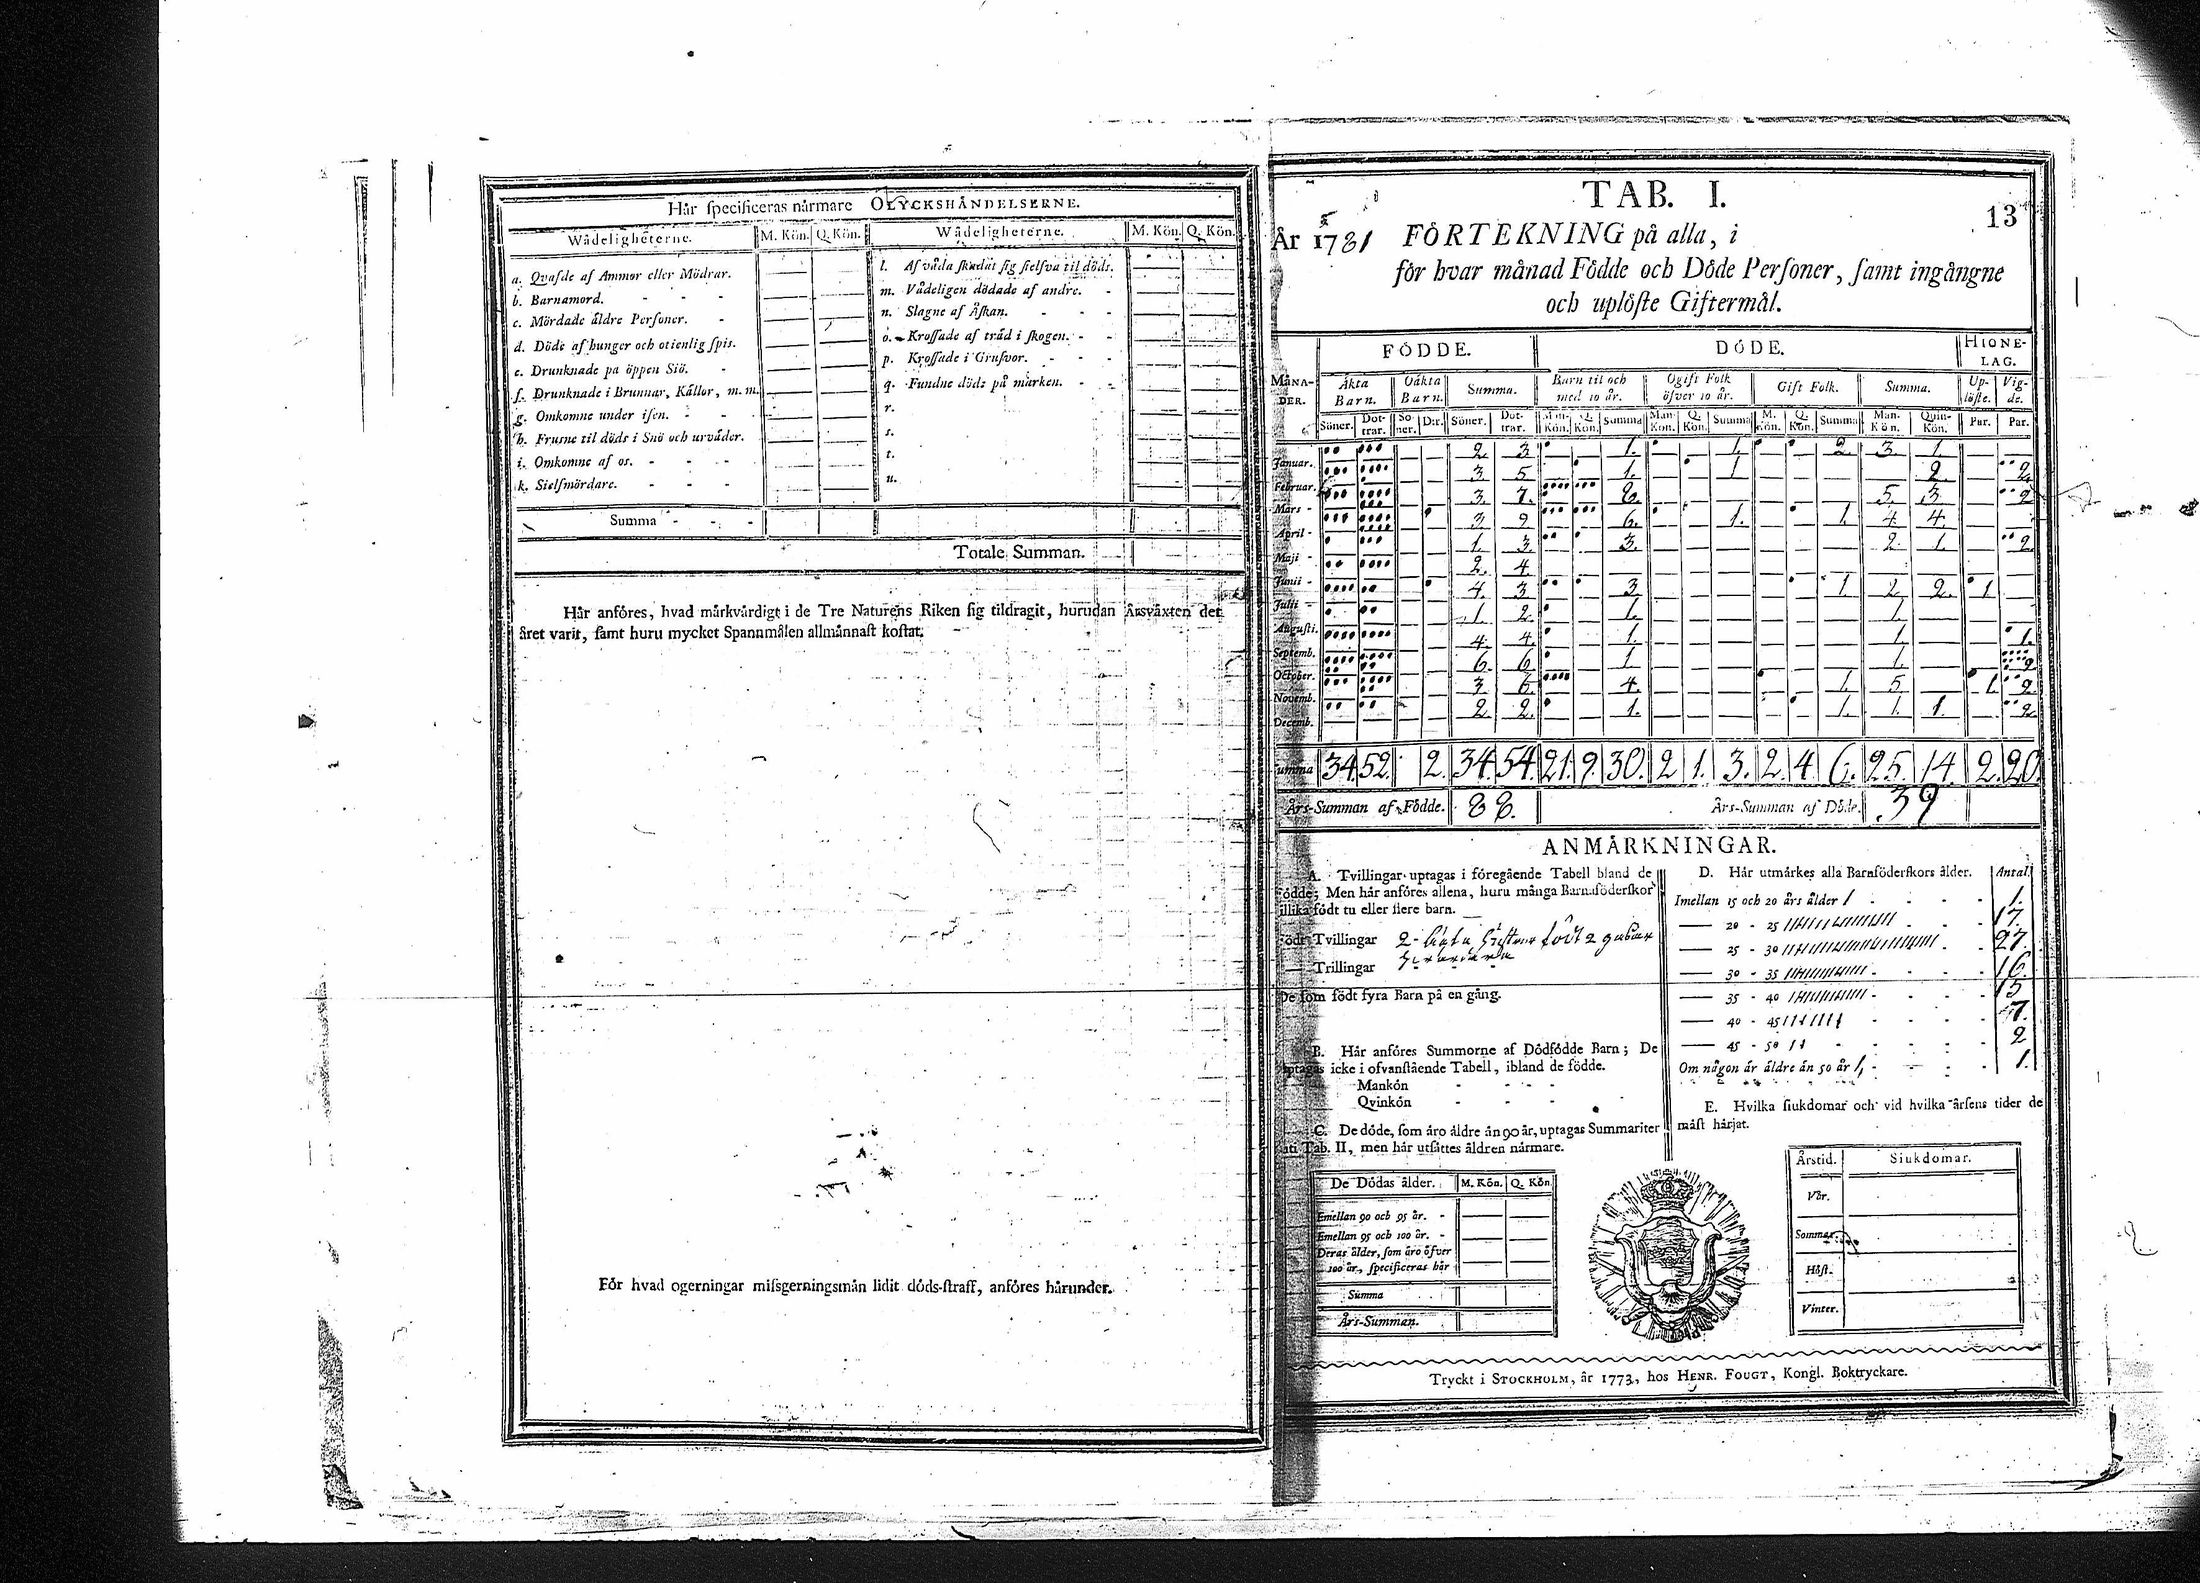 Hår ſpecificeras nårmare OLYCKSHÅNDELSERNE.
Wådeligheterne. M. Kön. Q. Kön. Wådeligheterne. M. Kön. Q. Kön.
a. Qvafde af Ammor eller Mödrar.
b. Barnamord. - - -
c. Mördade åldre Perſoner. -
d. Döde af hunger och otienlig ſpis.
e. Drunknade på öppen Siö. -
f. Drunknade i Brunnar, Kållor, m. m.
g. Omkomne under iſen. - -
h. Frusne til döds i Snö och urvåder.
i. Omkomne af os. - - -
k. Sielfmördare. - - -
l. Af våda ſkadat ſig ſielfva til döds.
m. Vådeligen dödade af andre. -
n. Slagne af Åſkan. - - -
o. Kroſſade af tråd i ſkogen. - -
p. Kroſſade i Grufvor. - - -
q. Fundne döde på marken. - -
r.
s.
t.
u.
Summa - - -
Totale Summan.
Hår anföres, hvad mårkvårdigt i de Tre Naturens Riken ſig tildragit, hurudan Årsvåxten det
året varit, ſamt huru mycket Spannmålen allmånnaſt koſtat.
För hvad ogerningar miſsgerningsmån lidit döds-ſtraff, anföres hårunder.
TAB. I.
13
År 1781 FÖRTEKNING på alla, i
för hvar månad Födde och Döde Perſoner, ſamt ingångne
och uplöſte Giftermål.
MÅNA-DER. FÖDDE. DÖDE. HIONE-LAG.
Åkta Barn. Oåkta Barn. Summa. Barn til och med 10 år. Ogift Folk öfver 10 år. Gift Folk. Summa. Up-löſte. Vig-de.
Söner. Dot-trar. Sö-ner. D:r. Söner. Dot-trar. Man-Kön. Q. Kön. Summa Man-Kön. Q. Kön. Summa M. Kön. Q. Kön. Summa Man-Kön. Quin-Kön. Par. Par.
Januar. 2. 3 1. 1. 2 3 1
Februar. 3 5 1. 1 2. 2
Mars - 3. 7. 8. 5. 3 2
April - 3 9 6. 1. 1. 4 4
Maji - 1. 3. 3. 2 1. 2
Junii - 2. 4
Julii - 4. 3 3 1 2 2. 1
Auguſti. 1 2 1. 1
Septemb. 4. 4. 1. 1 1.
October. 6. 6. 1 1. 9
Novemb. 3 6. 4. 1. 5 1. 2
Decemb. 2 2. 1. 1. 1. 1. 2
Summa 34 52 2. 34. 54. 21. 9. 30. 2 1. 3. 2. 4. 6. 25. 14. 2. 20.
Års-Summan af Födde. 88. Års-Summan af Döde. 39
ANMÅRKNINGAR.
A. Tvillingar uptagas i föregående Tabell bland de
födde; Men hår anföres allena, huru många Barnsföderſkor
tillika födt tu eller flere barn.
Födt Tvillingar 2
— Trillingar
De ſom födt fyra Barn på en gång.
B. Hår anföres Summorne af Dödfödde Barn; De
uptagas icke i ofvanſtående Tabell, ibland de födde.
Mankön - - - -
Qvinkön - - -
C. De döde, ſom åro åldre ån 90 år, uptagas Summariter
uti Tab. II, men hår utſåttes åldren nårmare.
De Dödas ålder. M. Kön. Q. Kön.
Emellan 90 och 95 år. -
Emellan 95 och 100 år. -
Deras ålder, ſom åro öfver
100 år, ſpecificeras hår
Summa
Års-Summan.
D. Hår utmårkes alla Barnföderſkors ålder. Antal.
Imellan 15 och 20 års ålder - - - 1.
— 20 - 25 - 17.
— 25 - 30 - 27.
— 30 - 35 - - - 16.
— 35 - 40 - - - 15
— 40 - 45 - - - 7.
— 45 - 50 - - - 2
Om någon år åldre ån 50 år - - - 1.
E. Hvilka ſiukdomar och vid hvilka årſens tider de
måſt hårjat.
Årstid. Siukdomar.
Vår.
Sommar.
Höſt.
Vinter.
Tryckt i STOCKHOLM, år 1773, hos HENR. FOUGT, Kongl. Boktryckare.